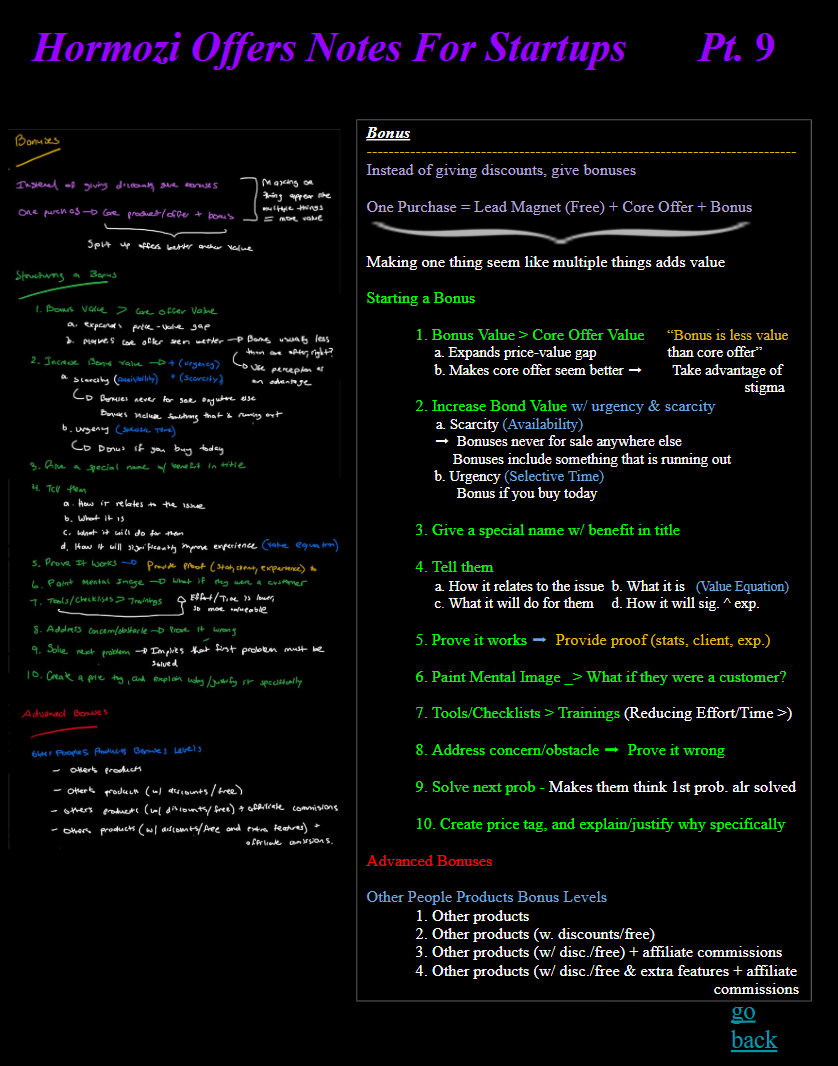 Hormozi Offers Notes For Startups Pt. 9
Bonuses
Instead of giving discounts give bonuses
One purchas → Core product/offer + bonus
Making one
thing appear like
multiple things
= more value
Split up offers better anchor value
Structuring a Bonus
1. Bonus Value > Core offer Value
a. expands price-value gap
b. makes core offer seem better → Bonus usually less
than core offer, right?
Use perception as
an advantage
2. Increase Bonus value → + (urgency)
+ (scarcity)
a. Scarcity (availability)
Bonuses never for sale anywhere else
Bonuses include something that is running out
b. urgency (selective time)
Bonus if you buy today
3. Give a special name w/ benefit in title
4. Tell them
a. How it relates to the issue
b. What it is
c. What it will do for them
d. How it will significantly improve experience (value equation)
5. Prove It works → Provide proof (stats, client, experience)
6. Paint Mental Image → What if they were a customer
7. Tools/Checklists > Trainings
Effort/Time is lower,
so more valueable
8. Address concern/obstacle → Prove it wrong
9. Solve next problem → Implies that first problem must be
solved
10. Create a price tag, and explain why/justify it specifically
Advanced Bonuses
Other Peoples Products Bonuses Levels
- Others products
- Others products (w/ discounts/free)
- others products (w/ discounts/free) + affiliate commissions
- others products (w/ discounts/free and extra features) +
affiliate commissions.
Bonus
Instead of giving discounts, give bonuses
One Purchase = Lead Magnet (Free) + Core Offer + Bonus
Making one thing seem like multiple things adds value
Starting a Bonus
1. Bonus Value > Core Offer Value “Bonus is less value
a. Expands price-value gap than core offer”
b. Makes core offer seem better → Take advantage of
stigma
2. Increase Bond Value w/ urgency & scarcity
a. Scarcity (Availability)
→ Bonuses never for sale anywhere else
Bonuses include something that is running out
b. Urgency (Selective Time)
Bonus if you buy today
3. Give a special name w/ benefit in title
4. Tell them
a. How it relates to the issue b. What it is (Value Equation)
c. What it will do for them d. How it will sig. ^ exp.
5. Prove it works → Provide proof (stats, client, exp.)
6. Paint Mental Image _> What if they were a customer?
7. Tools/Checklists > Trainings (Reducing Effort/Time >)
8. Address concern/obstacle → Prove it wrong
9. Solve next prob - Makes them think 1st prob. alr solved
10. Create price tag, and explain/justify why specifically
Advanced Bonuses
Other People Products Bonus Levels
1. Other products
2. Other products (w. discounts/free)
3. Other products (w/ disc./free) + affiliate commissions
4. Other products (w/ disc./free & extra features + affiliate
commissions
go
back